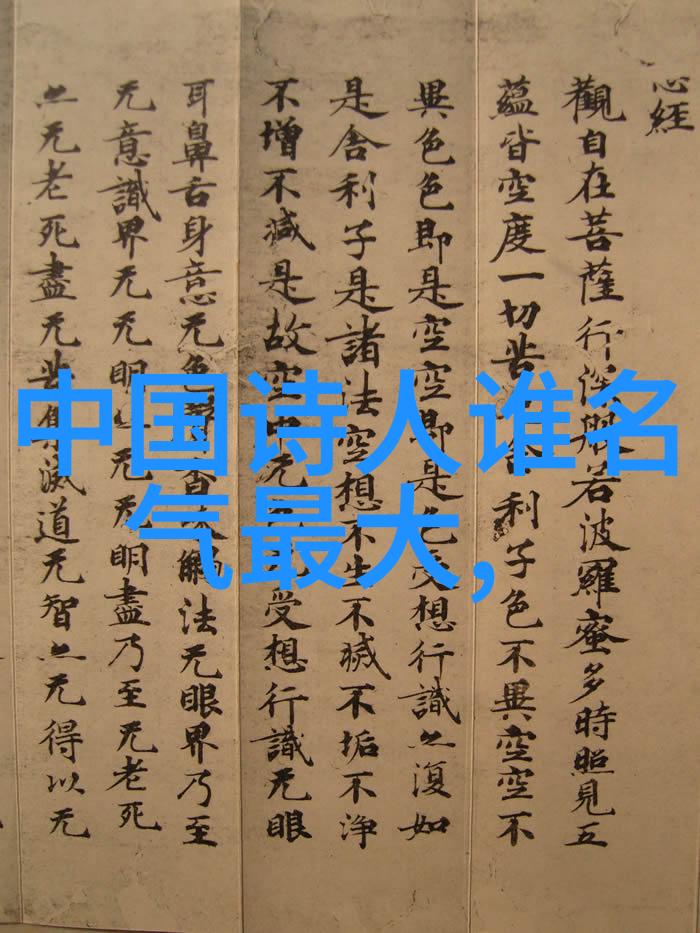 心經
觀自在菩薩行深般若波羅蜜多時照見五
蘊皆空度一切苦舍利子色不異空空不
異色色即是空空即是色受想行識亦復如
是舍利子是諸法空想不生不滅不垢不淨
不增不減是故空中无色无受想行識无眼
耳鼻舌身意无色聲香味觸法无眼界乃至
无意識界无无明亦无无明盡乃至无老死
亦无老死盡无苦集滅道无智亦无得以无
中国诗人谁名
气最大,